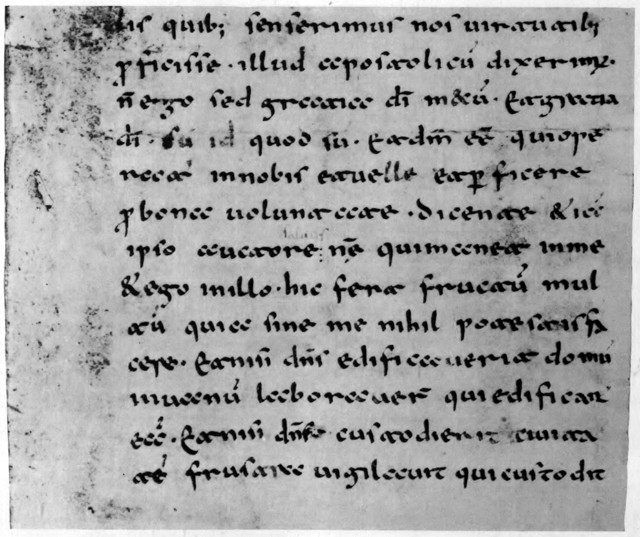 tis quib; senserimus nos uirtutib;
ꝓficisse · illud apostolicū dixerimꝰ ·
ñ ego sed gratia dī mecū · & gratia
dī · sū id quod sū · & dm̄ eē quiope
ratᷣ in nobis & uelle & ꝑficere
ꝓ bona uoluntate · dicente &ia
ipso auctore : nē qui manet in me
& ego in illo · hic fert fructū mul
tū quia sine me nihil potestis fa
cere · & nisi dn̄s edificauerit domū
in uanū laborauer̄ qui edificant
eā · & nisi dn̄s custodierit ciuita
tē frustra uigilauit qui custodit